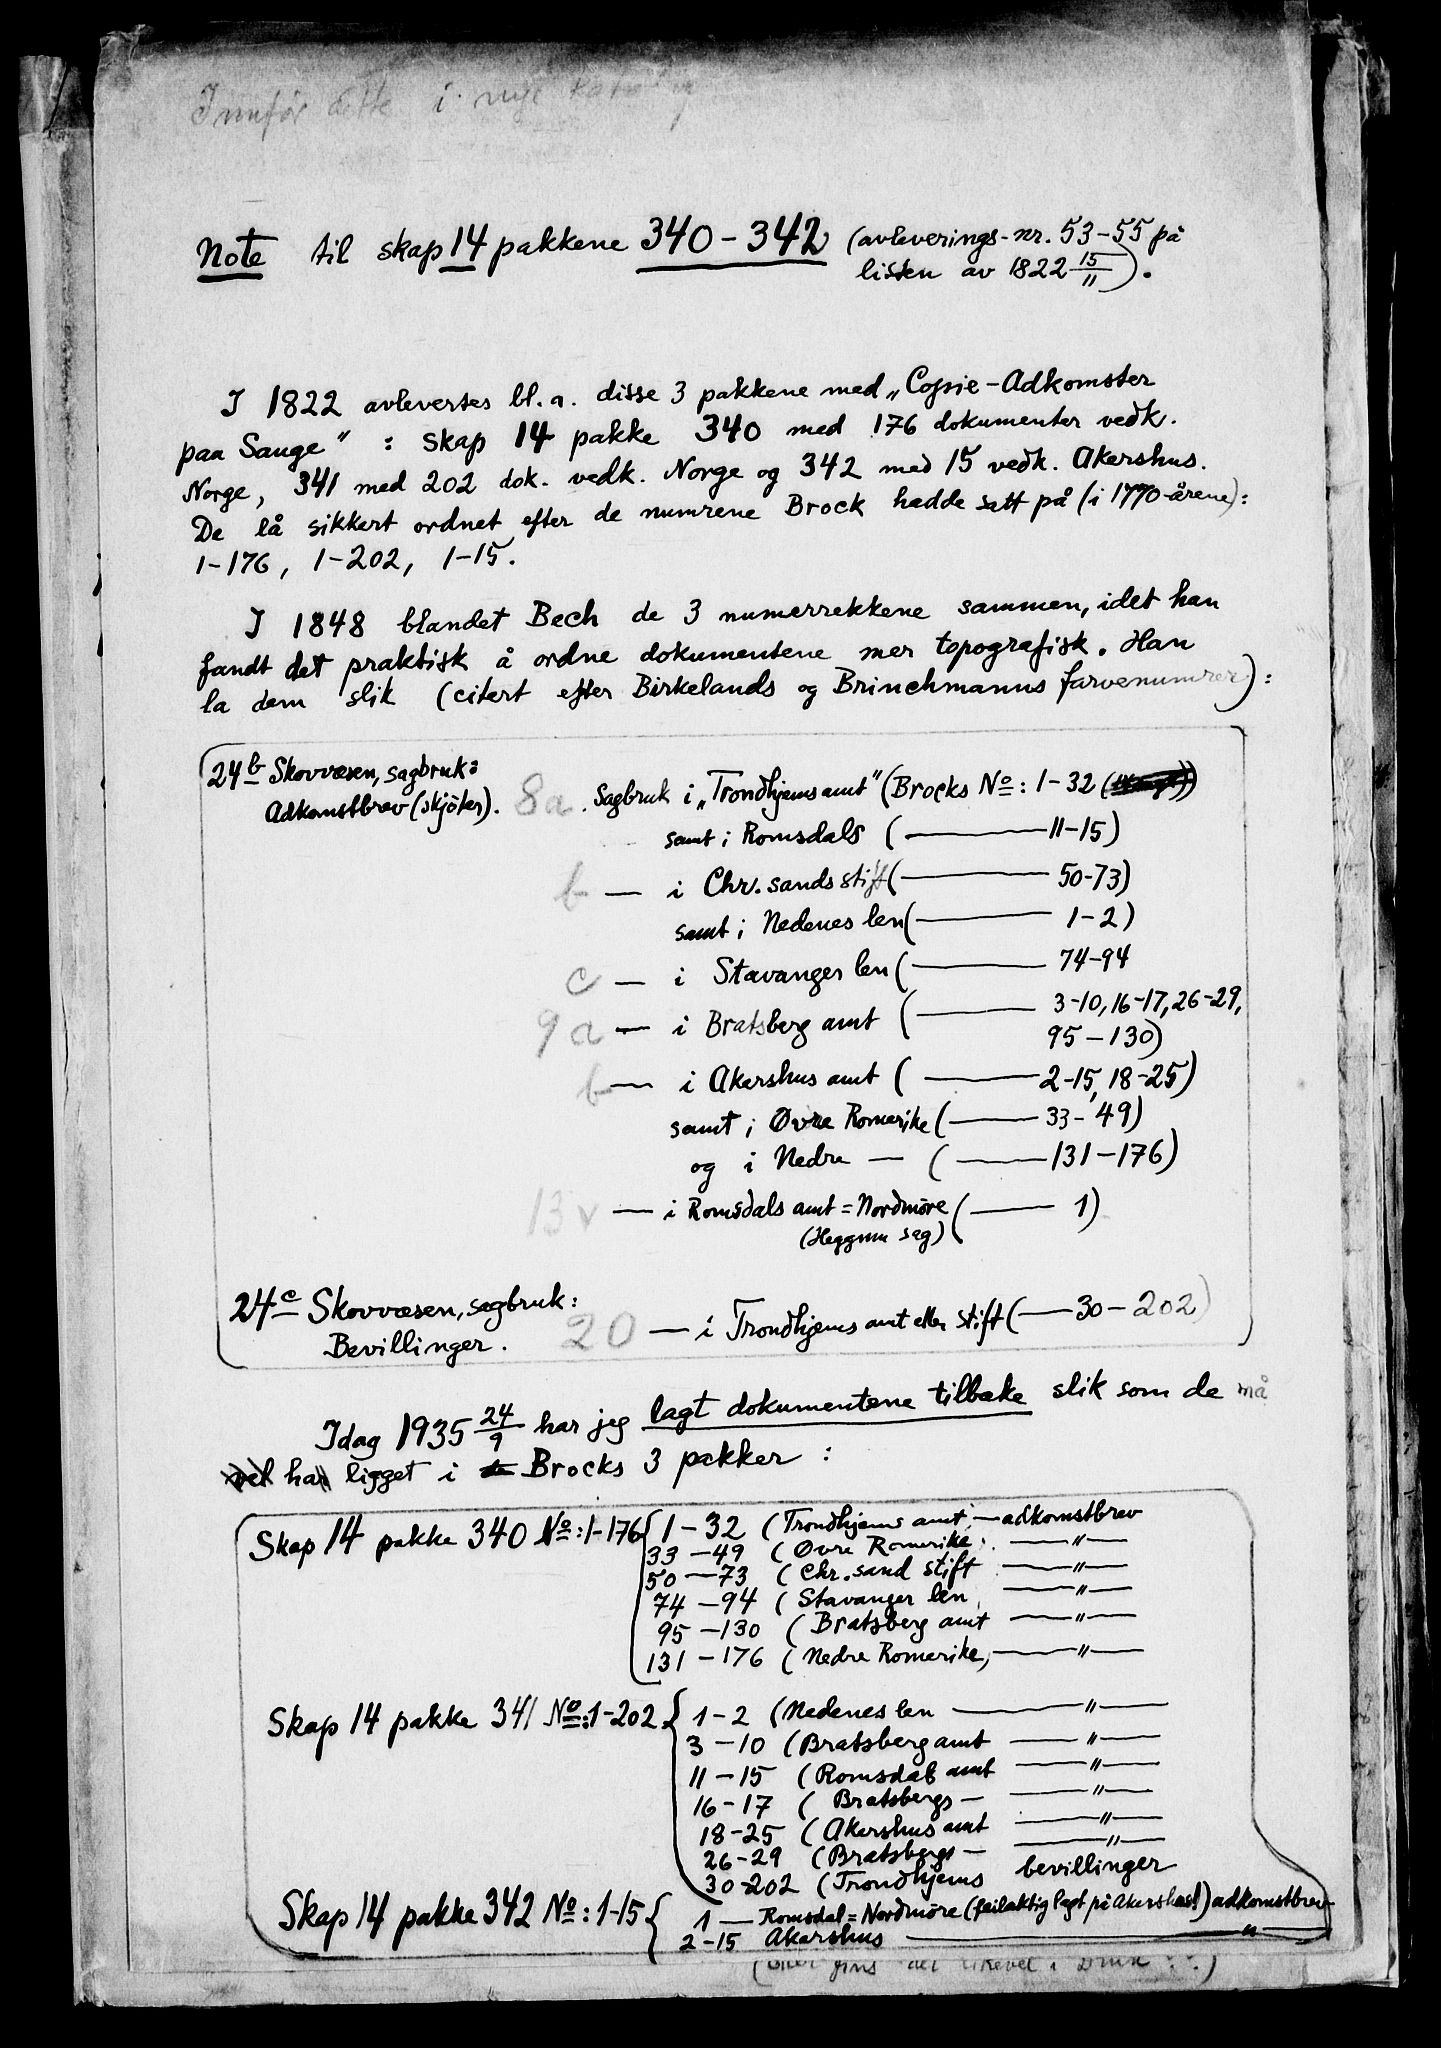 Innfør dette i nye
Note til skap 14 pakkene 340-342 (avleverings-nr. 53-55 på
listen av 1822 15/11).
I 1822 avlevertes bl.a. disse 3 pakkene med „Copie-Adkomster
paa Sauge" : Skap 14 pakke 340 med 176 dokumenter vedk.
Norge, 341 med 202 dok. vedk. Norge og 342 med 15 vedk. Akershus.
De lå sikkert ordnet efter de numrene Brock hadde satt på (i 1770-årene):
1-176, 1-202, 1-15.
I 1848 blandet Bech de 3 numerrekkene sammen, idet han
fandt det praktisk å ordne dokumentene mer topografisk. Han
la dem slik (citert efter Birkelands og Brinchmanns farvenumrer):
24b Skovvæsen, sagbruk:
Adkomstbrev (skjöter). 8a. Sagbruk i „Trondhjems amt" (Brocks No: 1-32
samt i Romsdals ( — 11-15)
b — i Chr.sands stift ( — 50-73)
samt i Nedenes len ( — 1-2)
c — i Stavanger len ( — 74-94
9a — i Bratsberg amt ( — 3-10, 16-17, 26-29,
95-130)
b — i Akershus amt ( — 2-15, 18-25)
samt i Øvre Romerike ( — 33-49)
og i Nedre — ( — 131-176)
13v — i Romsdals amt = Nordmöre ( — 1)
(Heggem sag)
24c Skovvæsen, sagbruk:
Bevillinger. 20 — i Trondhjems amt eller stift ( — 30-202)
Idag 1935 24/9 har jeg lagt dokumentene tilbake slik som de må
vel ha ligget i de Brocks 3 pakker :
Skap 14 pakke 340 No: 1-176 { 1-32 (Trondhjems amt, — adkomstbrev
33-49 (Øvre Romerike, — " —
50-73 (Chr.sand stift — " —
74-94 (Stavanger len, — " —
95-130 (Bratsberg amt — " —
131-176 (Nedre Romerike, — " —
Skap 14 pakke 341 No: 1-202 { 1-2 (Nedenes len — " —
3-10 (Bratsberg amt — " —
11-15 (Romsdals amt — " —
16-17 (Bratsbergs — — " —
18-25 (Akershus amt — " —
26-29 (Bratsbergs — — " —
30-202 (Trondhjems bevillinger
Skap 14 pakke 342 No: 1-15 { 1 — Romsdal = Nordmöre (feilaktig lagt på Akershus!) adkomstbrev
2-15 Akershus — " —
fins det likevel i